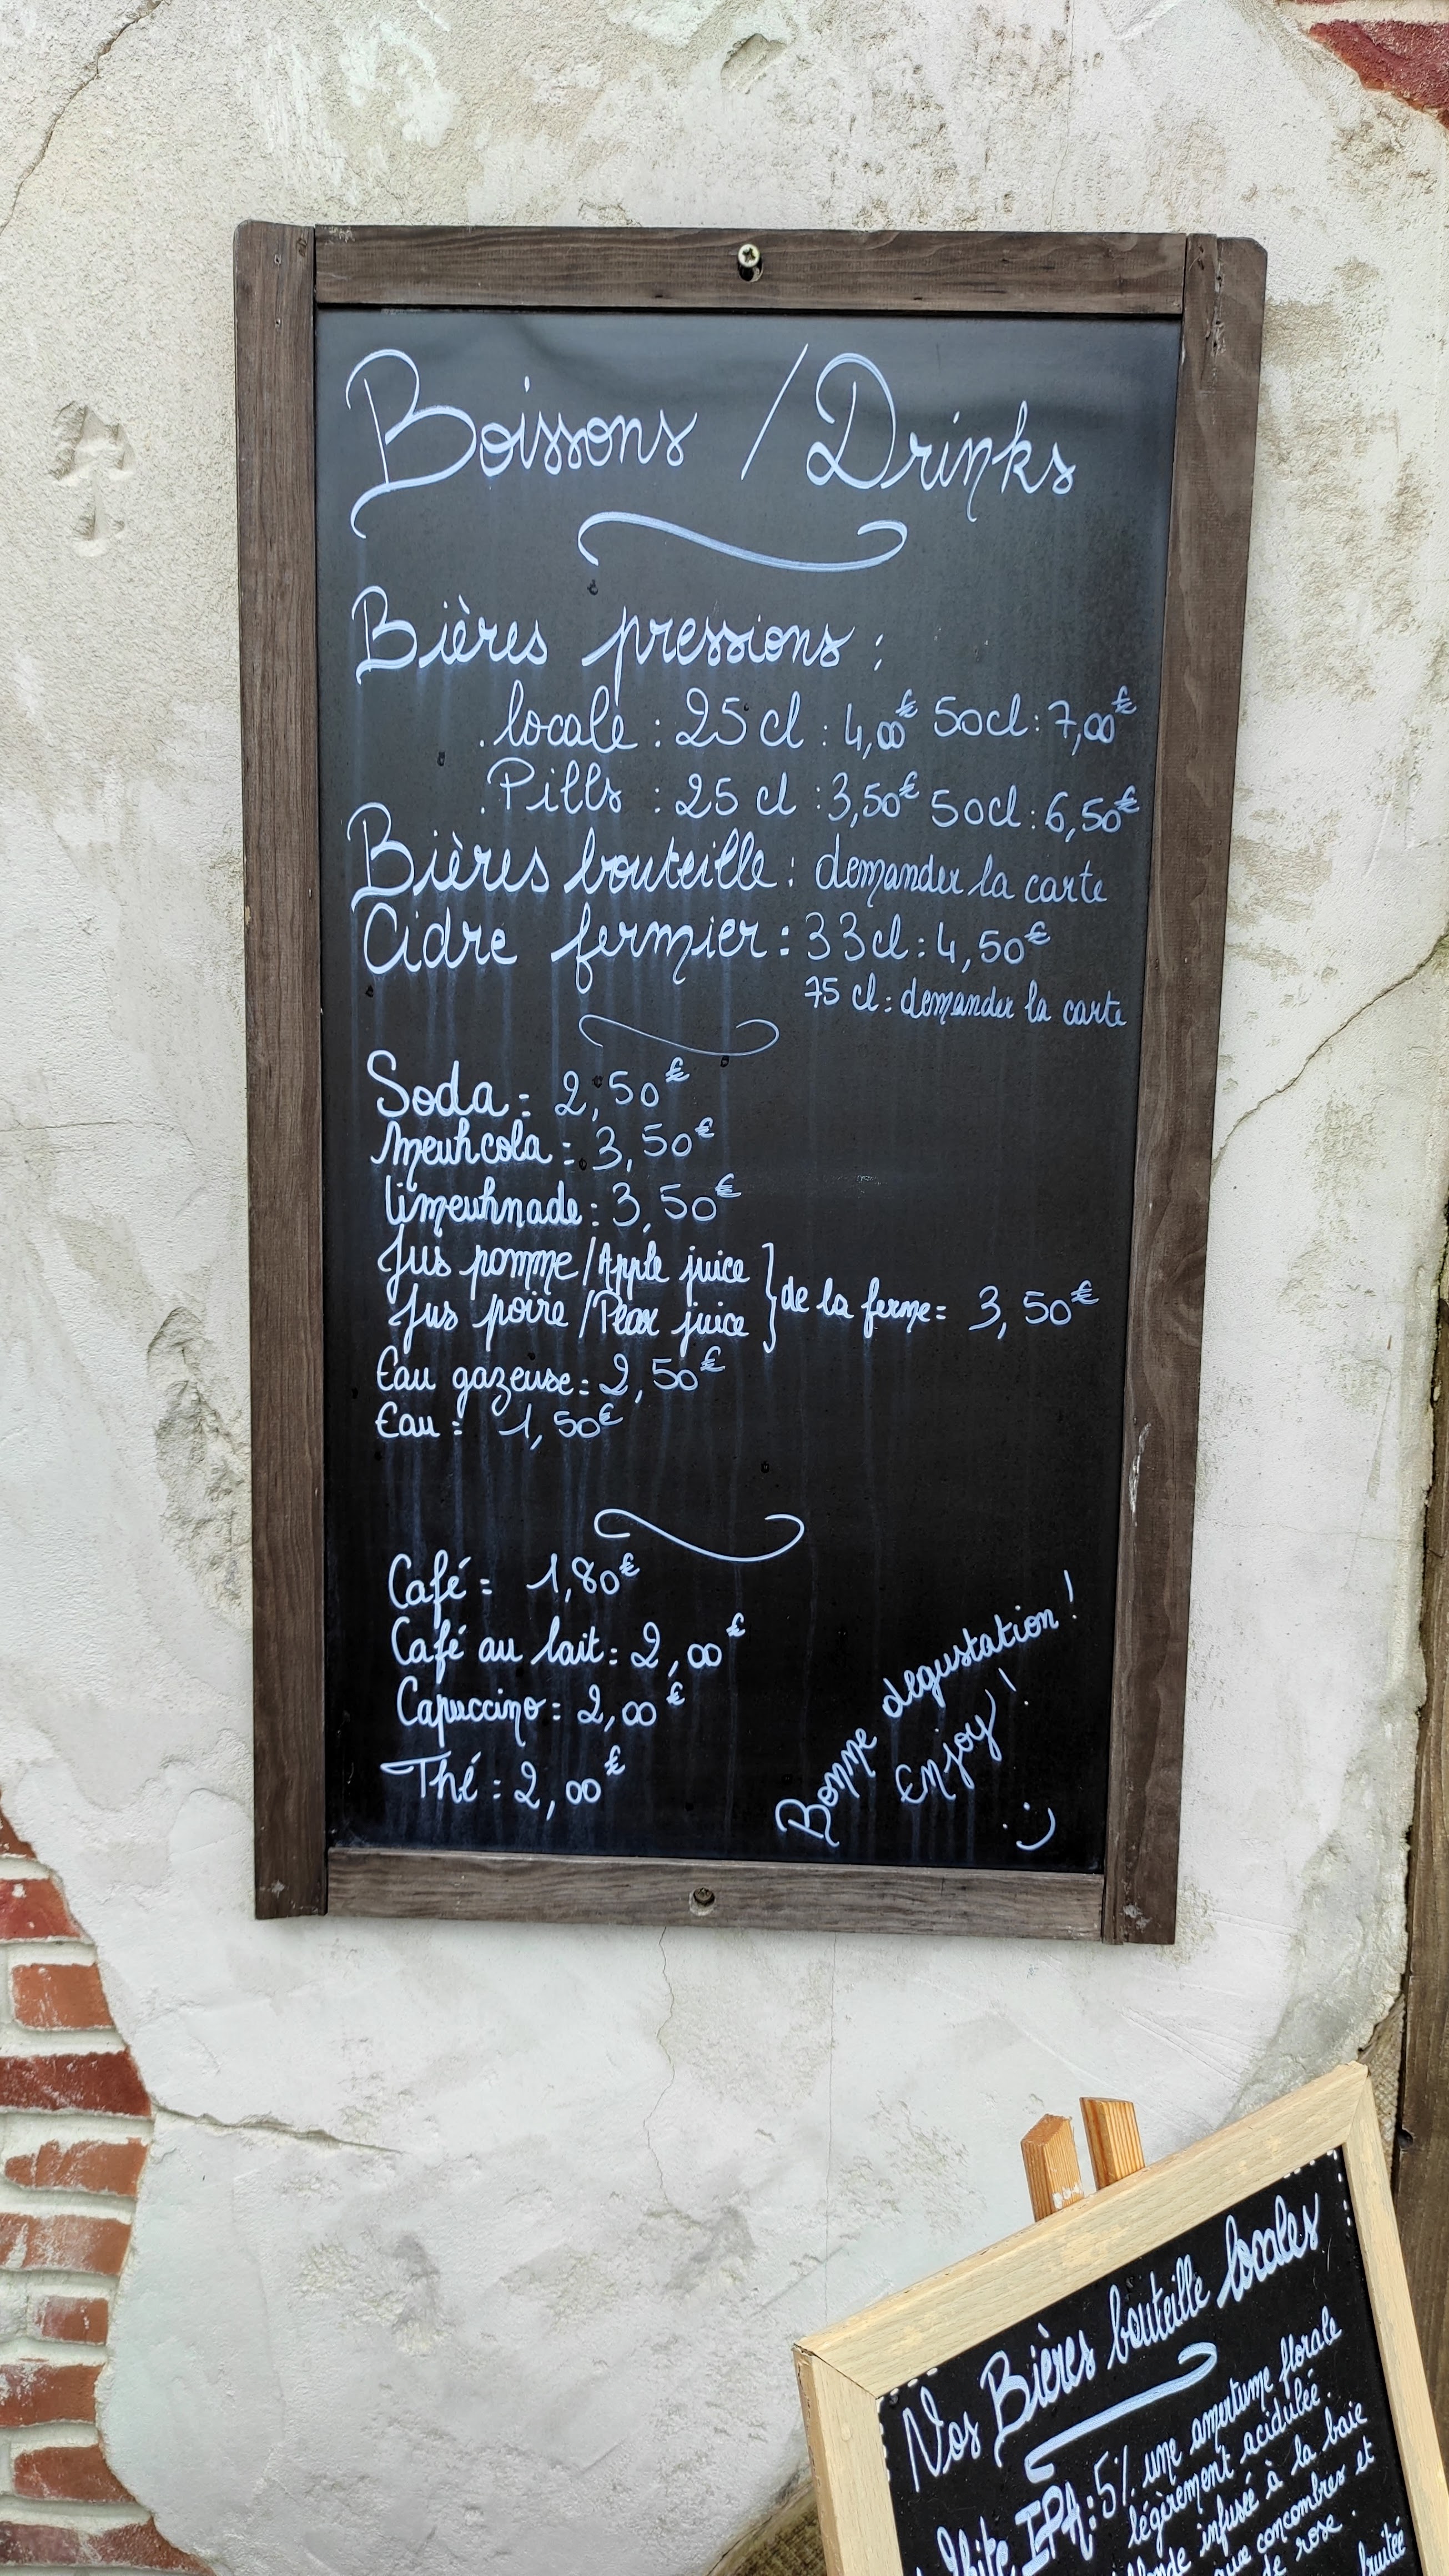 Boissons / Drinks
Bières pressions :
. locale : 25 cl : 4,00€ 50cl : 7,00€
. Pills : 25 cl : 3,50€ 50cl : 6,50€
Bières bouteille : demander la carte
Cidre fermier : 33cl : 4,50€
75 cl : demander la carte
Soda : 2,50€
Meuhcola : 3,50€
limeuhnade : 3,50€
Jus pomme / Apple juice
Jus poire / Pear juice
} de la ferme : 3,50€
Eau gazeuse : 2,50€
Eau : 1,50€
Café : 1,80€
Café au lait : 2,00€
Capuccino : 2,00€
Thé : 2,00€
Bonne degustation !
Enjoy !
:)
Nos Bières bouteille locales
IPA : 5% une amertume florale
légèrement acidulée.
infusée à la baie
concombres et
de rose.
fruitée